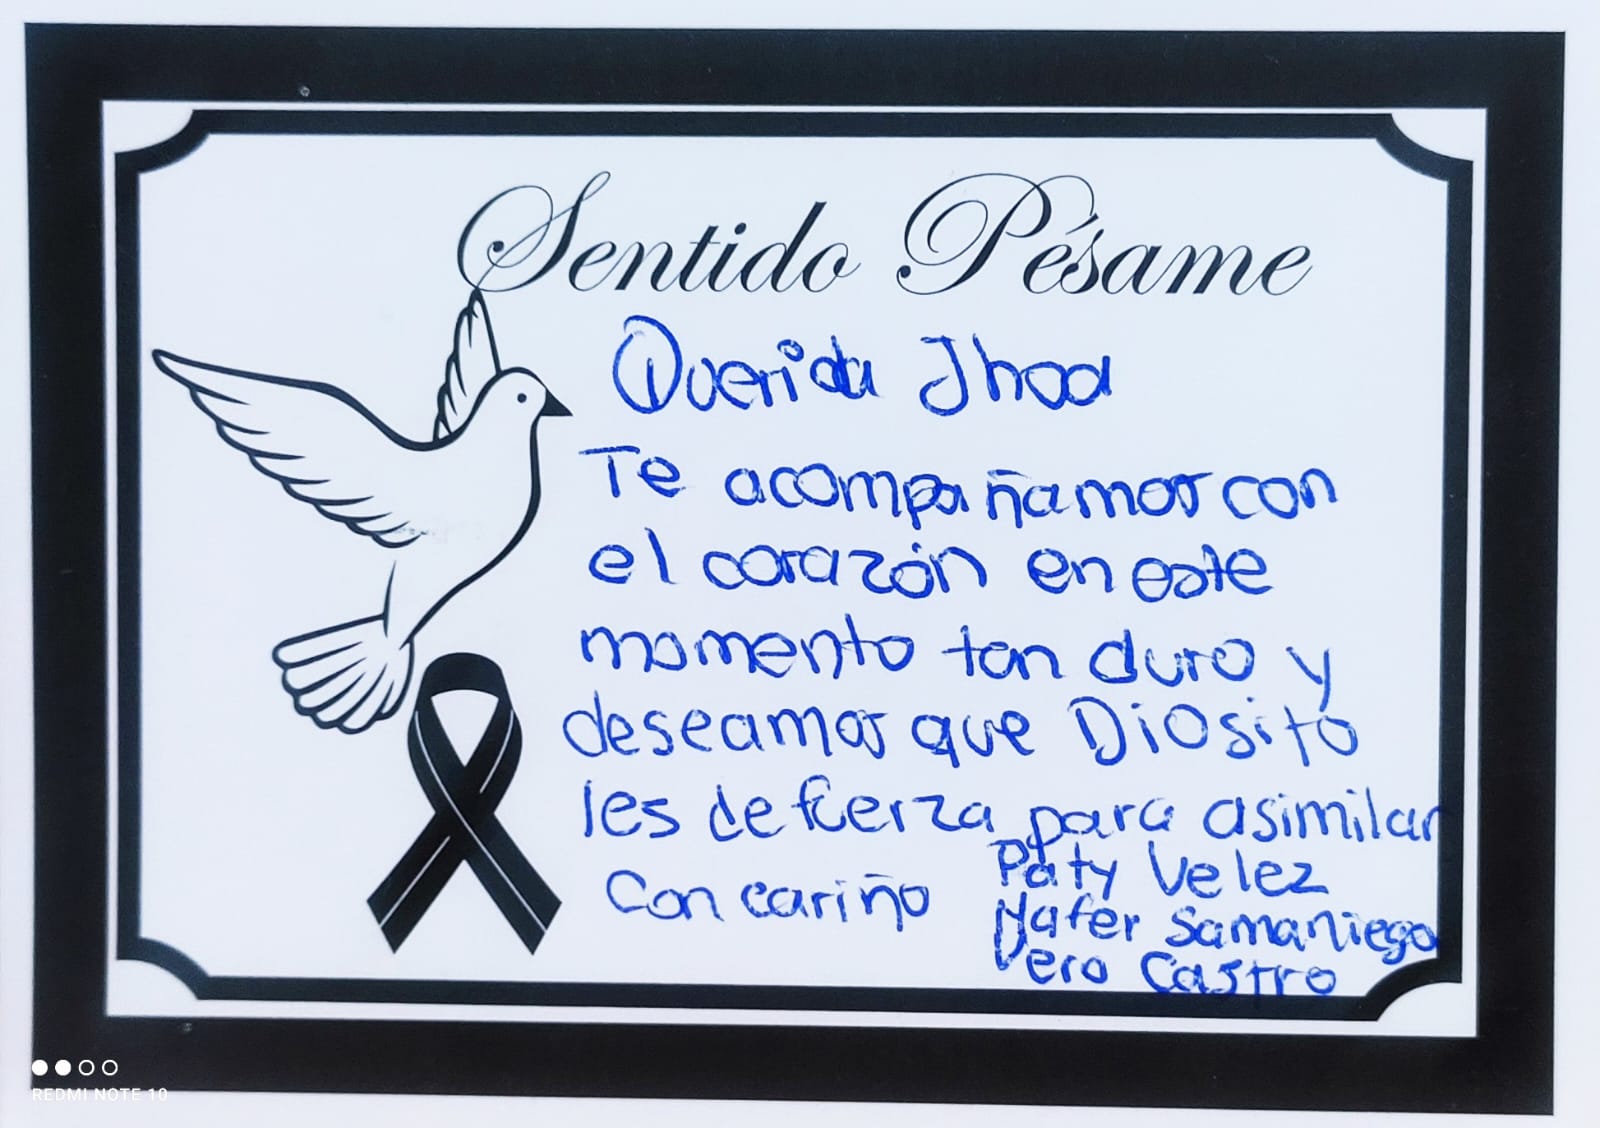 Sentido Pésame
Querida Jhoa
Te acompañamos con
el corazón en este
momento tan duro y
deseamos que Diosito
les de fuerza para asimilar
Con cariño
Paty Velez
Nafer Samaniego
Vero Castro
REDMI NOTE 10